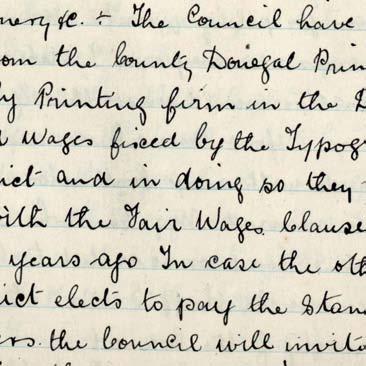 nery &c. ÷ The Council have
om the County Donegal Prin
ly Printing firm in the D
d Wages fixed by the Typog
ict and in doing so they
ith the Fair Wages Clause
years ago In case the oth
ict elects to pay the Stan
ers. the Council will invit